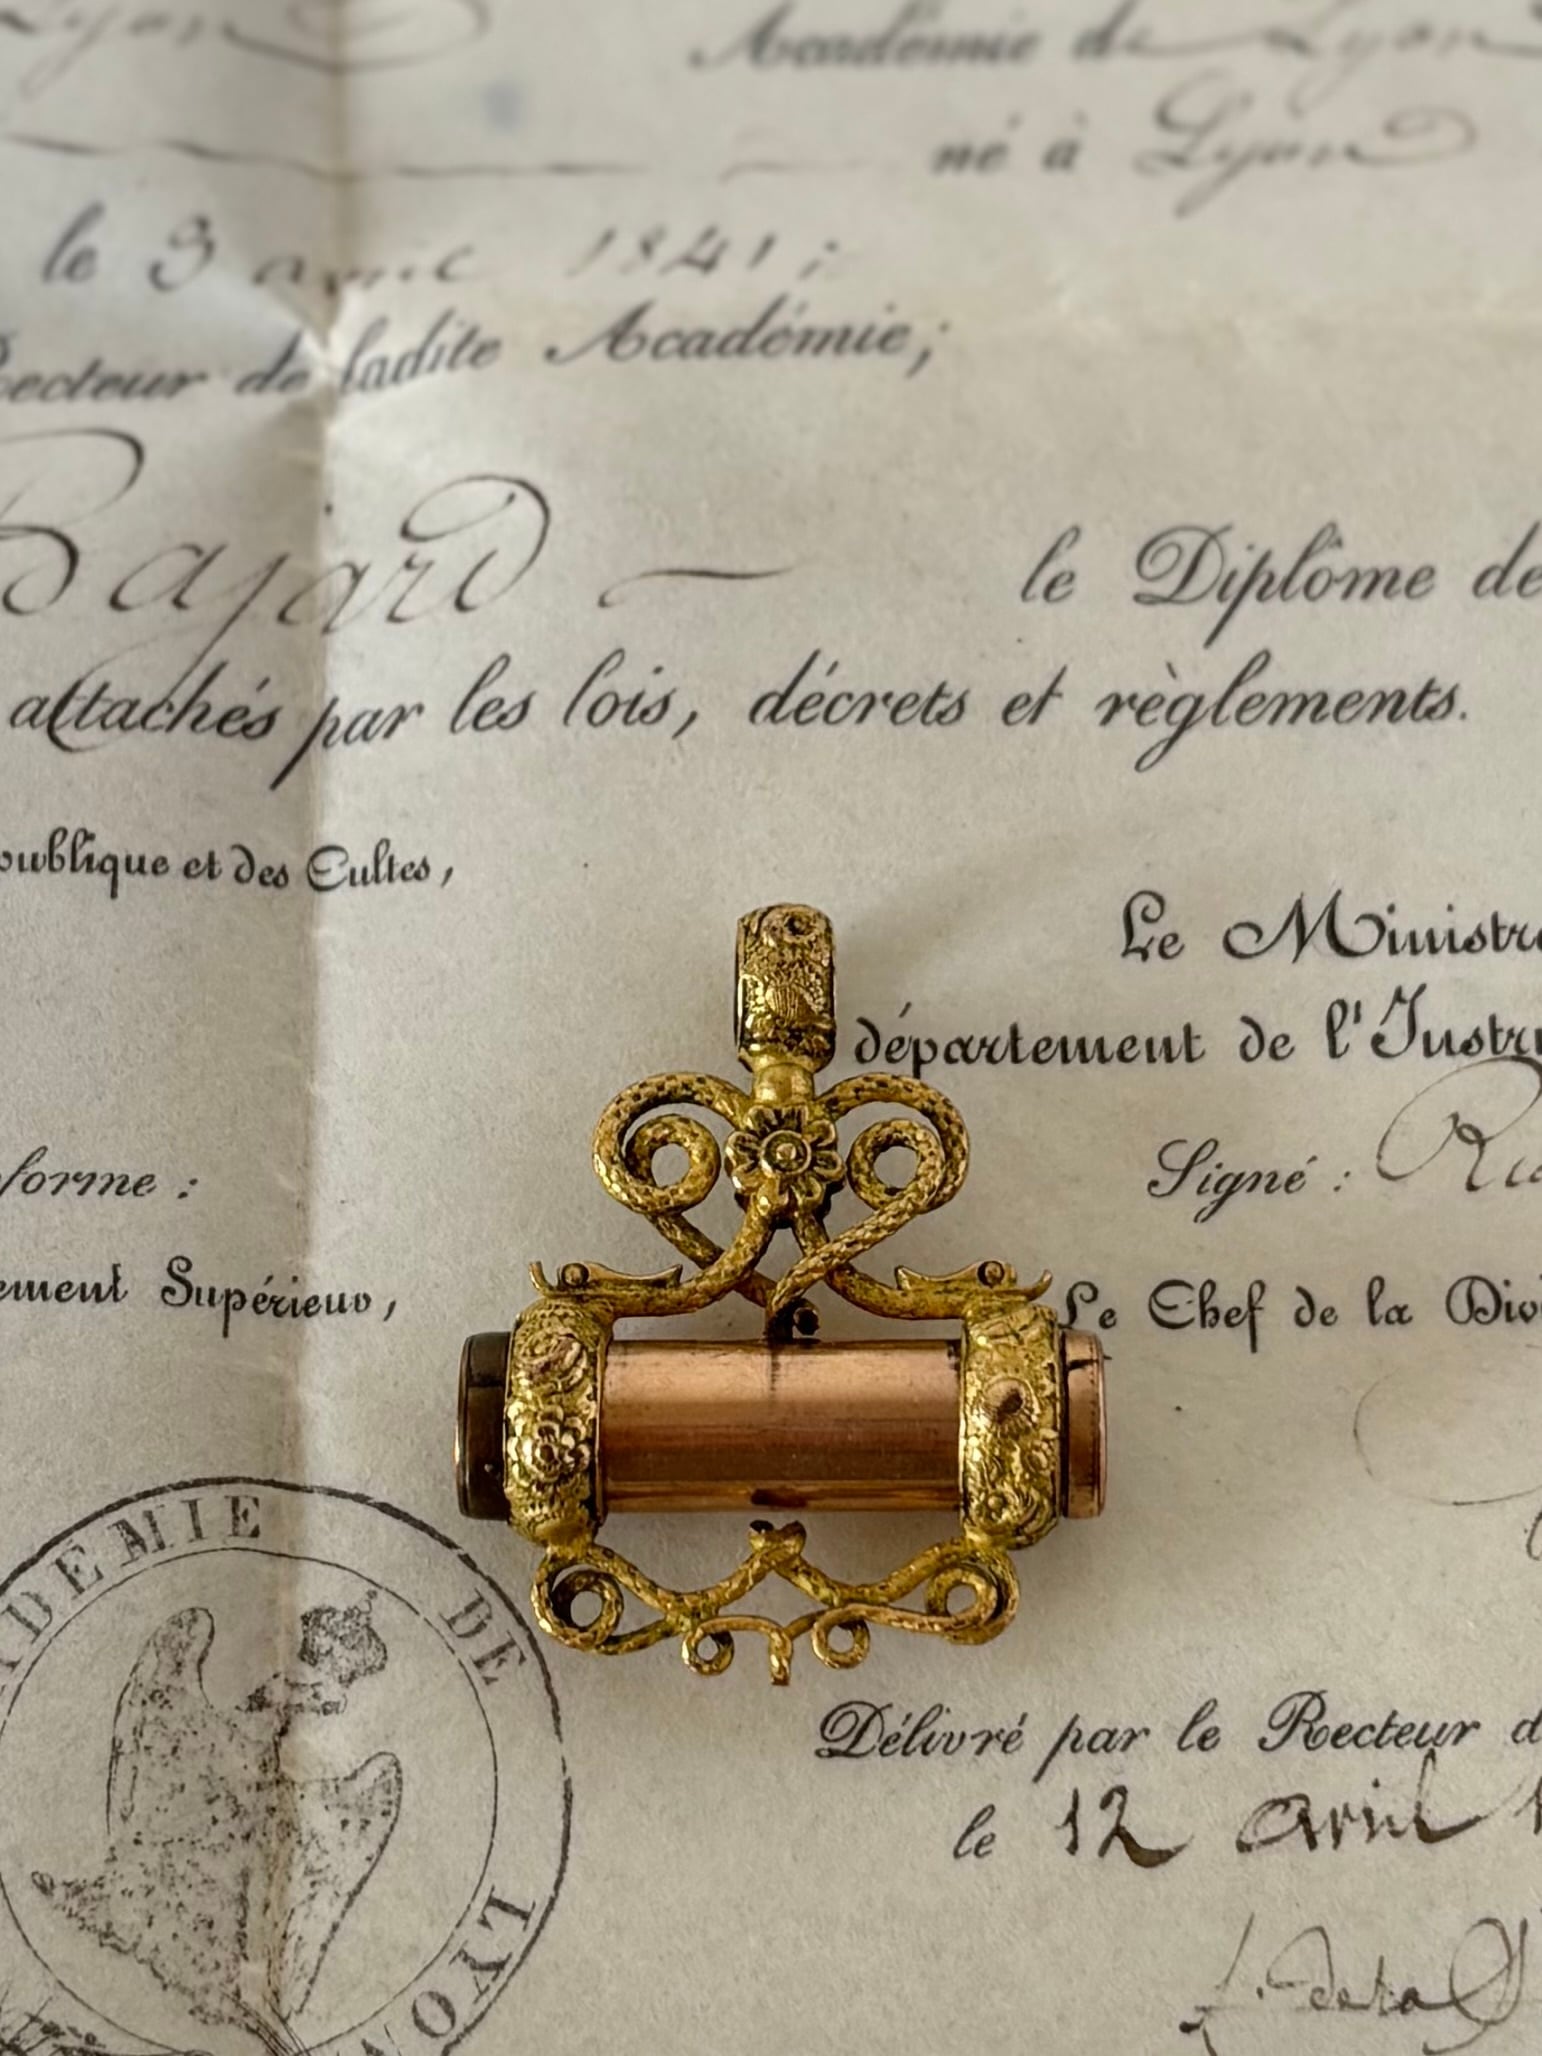 Lyon Académie de Lyon
né à Lyon
le 3 avril 1841 ;
Recteur de ladite Académie;
Bajard le Diplôme de
attachés par les lois, décrets et règlements.
publique et des Cultes,
Le Ministre
département de l'Instru
forme :
Signé : Rou
ement Supérieur,
Le Chef de la Div
ADÉMIE DE LYON
Délivré par le Recteur d
le 12 avril 1